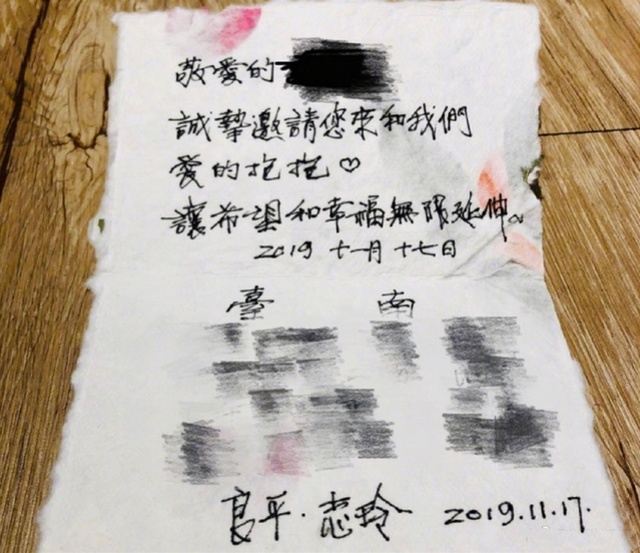 敬愛的
誠摯邀請您來和我們
愛的抱抱♡
讓希望和幸福無限延伸。
2019 十一月十七日
臺 南
良平．志玲 2019.11.17.